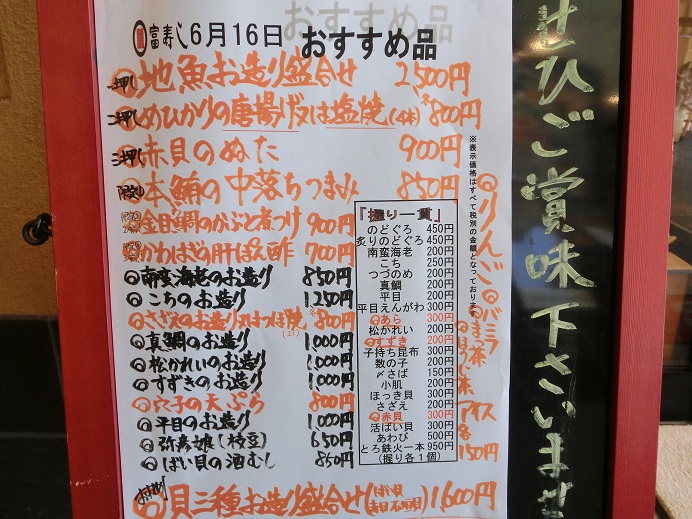 富寿し 6月16日 おすすめ品
一押し 地魚お造り盛合せ 2,500円
二押し めひかりの唐揚げ又は塩焼(4本)各800円
三押し 赤貝のぬた 900円
本鮪の中落ちつまみ 850円
金目鯛のかぶと煮つけ 900円
かわはぎの肝ぽん酢 700円
南蛮海老のお造り 850円
こちのお造り 1,250円
さざえのお造り又はつぼ焼 各800円
真鯛のお造り 1,000円
松かれいのお造り 1,000円
すずきのお造り 1,000円
穴子の天ぷら 800円
平目のお造り 1,000円
弥彦娘(枝豆) 650円
ばい貝の酒むし 850円
貝三種お造り盛合せ 1,600円
「握り一貫」
のどぐろ 450円
炙りのどぐろ 450円
南蛮海老 200円
こち 250円
つづのめ 200円
真鯛 200円
平目 200円
平目えんがわ 300円
あら 300円
松かれい 200円
すずき 200円
子持ち昆布 300円
数の子 200円
〆さば 150円
小肌 200円
ほっき貝 300円
さざえ 200円
赤貝 300円
活ばい貝 300円
あわび 500円
とろ鉄火一本 950円
(握り各1個)
※表示価格はすべて税別の金額となっております
りんご
バニラ
まっ茶
ほうじ茶
アイス
各150円
ぜひご賞味下さいませ